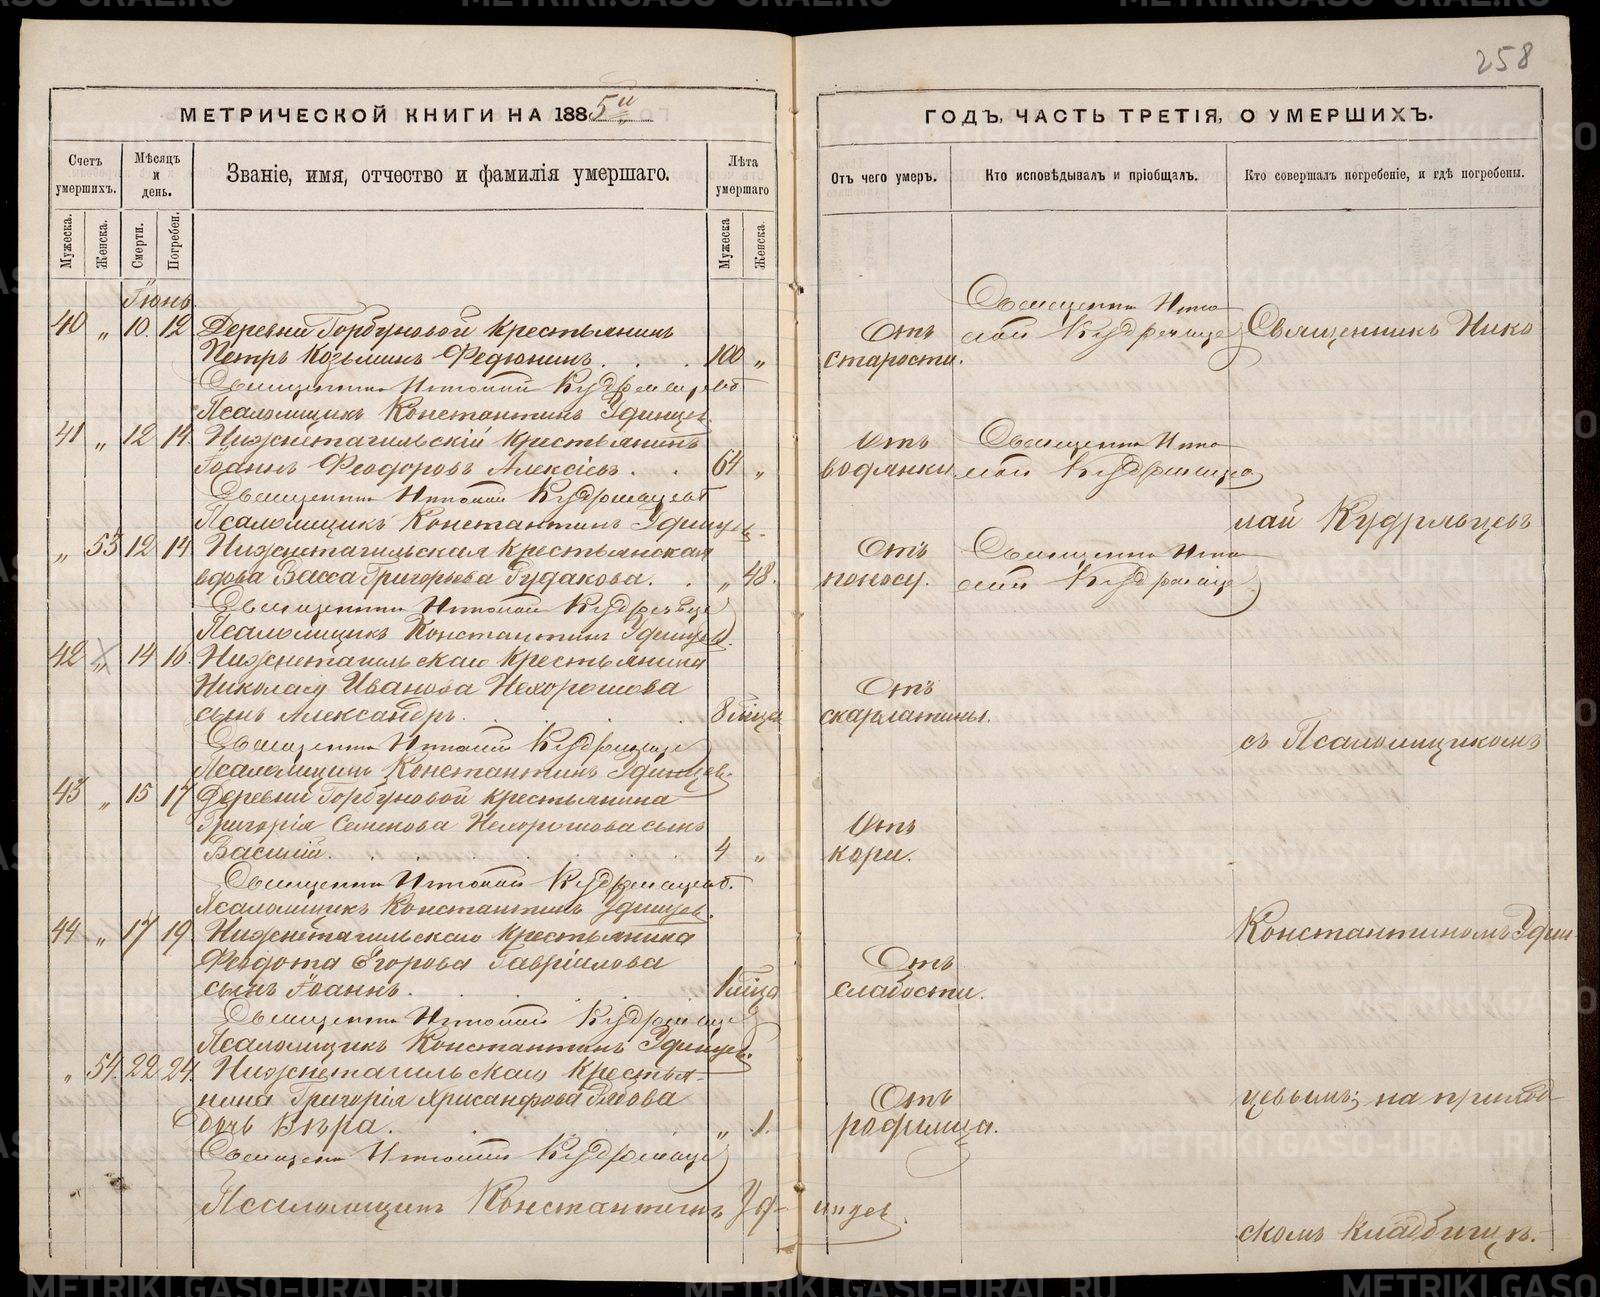 258
МЕТРИЧЕСКОЙ КНИГИ НА 1885й
ГОДЪ, ЧАСТЬ ТРЕТІЯ, О УМЕРШИХЪ.
Счетъ умершихъ.
Мѣсяцъ и день.
Званіе, имя, отчество и фамилія умершаго.
Лѣта умершаго
Отъ чего умеръ.
Кто исповѣдывалъ и пріобщалъ.
Кто совершалъ погребеніе, и гдѣ погребены.
Мужеска.
Женска.
Смерти.
Погребен.
Мужеска
Женска.
Іюнь.
40 „ 10. 12 Деревни Горбуновой крестьянинъ
Петръ Козьминъ Федюнинъ. 100 „
Отъ старости.
Священникъ Николай Кудрявцевъ
Священникъ Нико
Священникъ Николай Кудрявцевъ
Псаломщикъ Константинъ Удинцев.
41 „ 12 14 Нижнетагильскій крестьянинъ
Іоаннъ Феодоровъ Алексѣевъ. 64 „
Отъ водянки
Священникъ Николай Кудрявцев
Священникъ Николай Кудрявцевъ
Псаломщикъ Константинъ Удинцев.
лай Кудрявцевъ
„ 53 12 14 Нижнетагильская крестьянская
вдова Васса Григорьева Рудакова. „ 48.
Отъ поносу.
Священникъ Николай Кудрявцев
Священникъ Николай Кудрявцев
Псаломщикъ Константинъ Удинцев.
42 „ 14 16 Нижнетагильскаго крестьянина
Николая Иванова Нехорошова
сынъ Александръ. 8 мѣца
Отъ скарлатины.
Священникъ Николай Кудрявцев
Псаломщикъ Константинъ Удинцев.
съ Псаломщикомъ
43 „ 15 17 Деревни Горбуновой крестьянина
Григорія Семенова Нехорошова сынъ
Василій. 4 „
Отъ кори.
Священникъ Николай Кудрявцевъ.
Псаломщикъ Константинъ Удинцев.
Константиномъ Удин
44 „ 17 19 Нижнетагильскаго крестьянина
Федота Егорова Гавріилова
сынъ Іоаннъ. 1 мѣца
Отъ слабости.
Священникъ Николай Кудрявцев
Псаломщикъ Константинъ Удинцев.
„ 54. 22 24. Нижнетагильскаго крестья-
нина Григорія Рябова
дочь Вѣра. „ 1.
Отъ родимца.
цевымъ; на приход
Священникъ Николай Кудрявцев
Псаломщикъ Константинъ Удинцев.
скомъ кладбищѣ.
METRIKI.GASO-URAL.RU